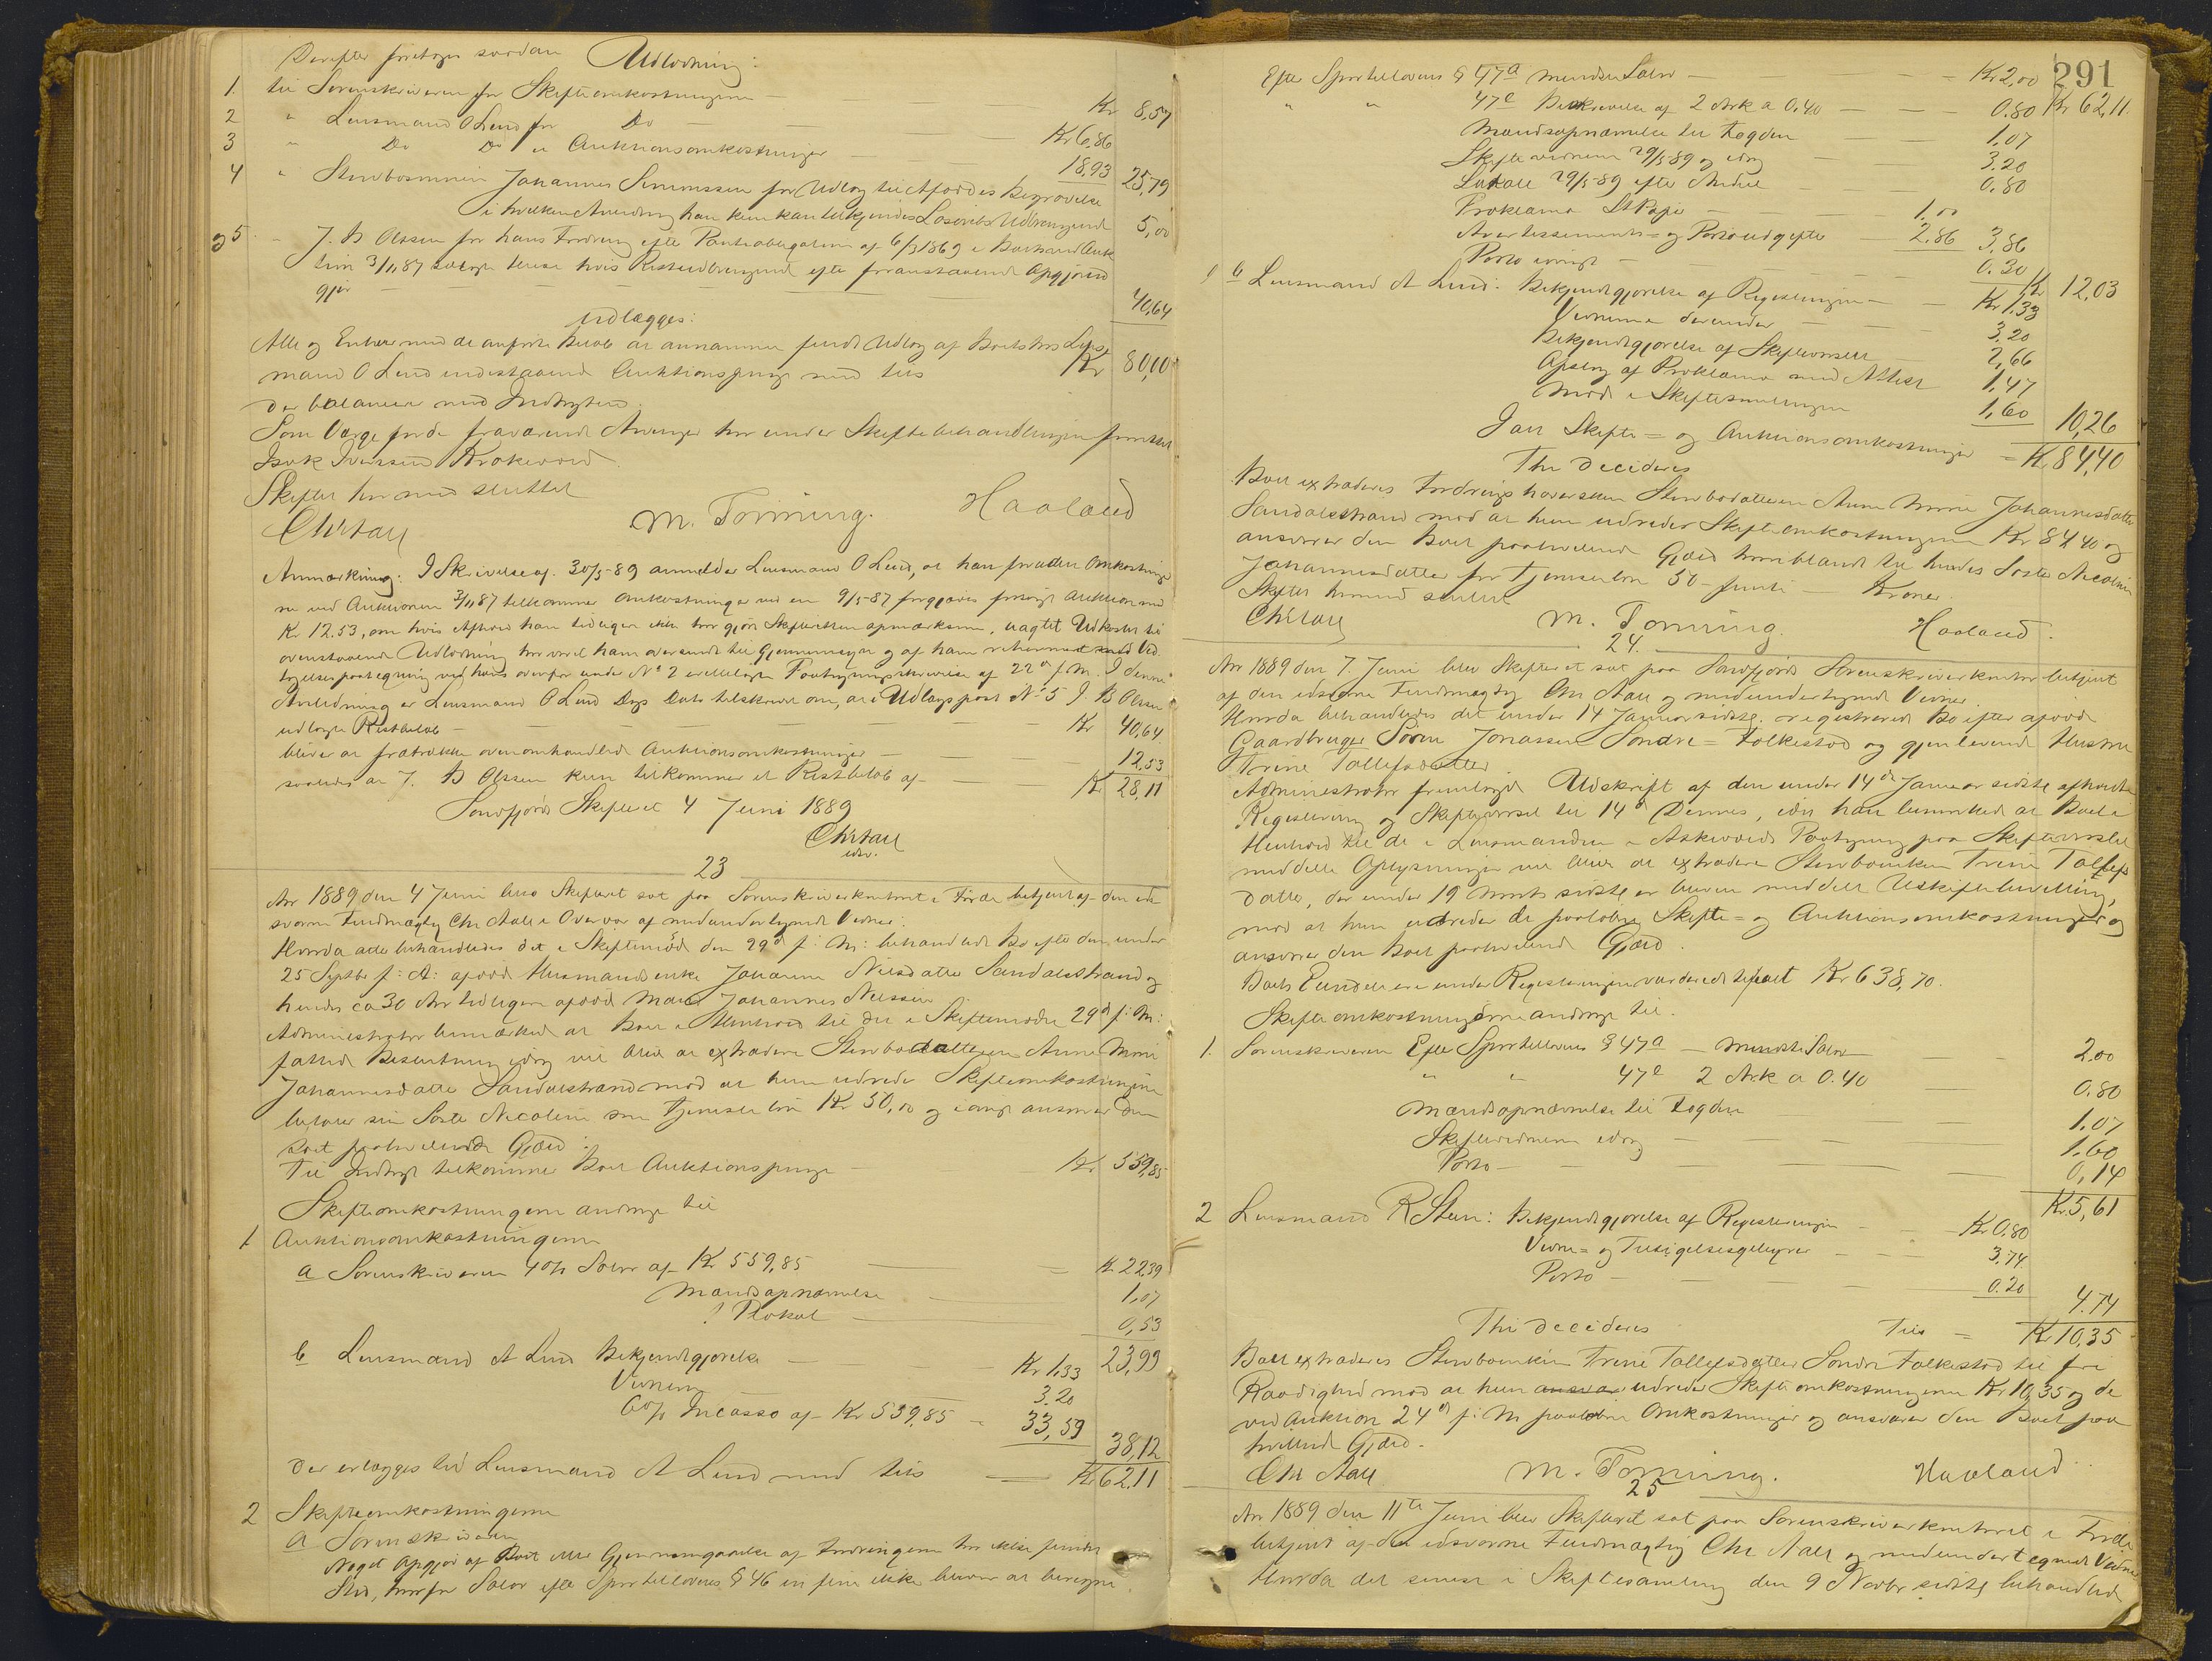 Derefter foretoges saadan Udlodning:
1. til Sorenskriveren for Skifteomkostningerne Kr 8,57
2 " Lensmand O Lend for Do Kr 6,86
3 " Do Do " Auktionsomkostninger 18,93 25,79
4 " Stervbosønnen Johannes Simonssen for Udlæg til Afdødes Begravelse
i hvilken Anledning han kun kan tilkjendes Løsøreets Udbringende 5,00
og 5 " J. B Olssen for hans Fordring efter Panteobligation af 6/3 1869 i
tion 3/11 87 hvis Restudbringende efter foranstaaende Opgjørend
gjør 40,64
udlægges:
Alle og Enhver med de anførte Beløb at annamme fuldt Udlæg af Boets hos Lens
mand O Lend indestaaende Auktionspenge med tils Kr 80,00
der balancerer med Indtægten.
Som Værge for de fraværende Arvinger har under Skiftebehandlingen
Isak Iverssen Krokevord
Skiftet hermed sluttet
Chr Aall M. Torning. Haaland
Anmærkning: I Skrivelse af 30/5-89 anmelder Lensmand O Lend, at han foruden Omkostninge
ne ved Auktionen 3/11 87 tilkommer Omkostninger ved en 9/5-87 forgjæves forsøgt Auktion med
Kr 12.53, om hvis Afhold han tidligere ikke har gjort Skifteretten opmærksom, uagtet Udkastet til
ovenstaaende Udlodning har været ham oversendt til Gjennemsyn og af ham returneret med Ved
tagelsespaategning ved hans ovenfor under No 2 Paategningsskrivelse af 22 d f. M. I denne
Anledning er Lensmand O Lend Dags Dato tilskrevet om, at i Udlægspost No 5 J. B Olsen
udlagte Restbeløb - Kr 40,64
bliver at fratrække ovenomhandlede Auktionsomkostninger - 12,53
saaledes at J. B Olssen kun tilkommer et Restbeløb af - Kr 28,11
Søndfjords Skifteret 4 Juni 1889
Chr Aall
edsv.
23
Aar 1889 den 4 Juni blev Skifteret sat paa Sorenskriverkontoret i Førde betjent af den ed
svorne Fuldmægtig Chr Aall i Overvær af medundertegnede Vidner:
Hvorda atter behandledes det i Skiftemøde den 29d f: M: behandlede Bo efter den under
25 Septbr f: A: afdøde Husmandsenke Johanne Nilsdatter Sandalsstrand og
hendes ca 30 Aar tidligere afdøde Mand Johannes Nilssen
Administrator bemærkede at Boet i Henhold til det i Skiftemødet 29d f: M:
fattede Beslutning idag vil blive at extradere Stervbodatteren Anne Marie
Johannesdatter Sandalstrand mod at hun udreder Skifteomkostningerne
betaler sin Søster Nicoline som Tjenesteløn Kr 50,00 og iøvrigt ansvarer den
Boet paahvilende Gjæld:
Til Indtægt tilkommer Boet Auktionspenge - Kr 559,85
Skifteomkostningerne andrage til
1 Auktionsomkostningerne
a Sorenskriveren 4% Salær af Kr 559,85 Kr 22,39
Mandsopnævnelse 1,07
Plokal 0,53
23,99
b Lensmand A Lend Bekjendtgjørelse Kr 1,33
Vidnerne 3.20
6% Incasso af Kr 559,85 - 33,59
38,12
der erlægges til Lensmand A Lend med tils Kr 62,11
2 Skifteomkostningerne
a Sorenskriveren
Noget Opgjør af Boet eller Gjennemgaaelse af Fordringerne har ikke fundet
Sted, hvorfor Salær efter Sportelloven § 46 in fine ikke bliver at beregne.
291
Efter Sportellovens § 47a mindste Salær - Kr 2,00
" " 47c Beskrivelse af 2 Ark a 0,40 - 0.80 Kr 62,11.
Mandsopnævnelse til Fogden 1,07
Skiftevidnerne 29/5-89 og idag 3.20
Lokale 29/5-89 efter Andel 0.80
Proklama St Papir - 1.00
Avertissements- og Portoudgifter - 2,86 3,86
Porto iøvrigt - 0.30
Kr 12,03
b Lensmand A Lend: Bekjendtgjørelse af Registreringen - Kr 1.33
Vidnerne derunder - 3.20
Bekjendtgjørelse af Skiftevarsel 2,66
Opslag af Proklama med Attest 1,47
Møde i Skiftesamlingen 1,60 10,26
I alt Skifte= og Auktionsomkostninger = Kr 84,40
Thi Decideres
Boet extraderes Fordringshaversken Stervbodatteren Anne Marie Johannesdatter
Sandalsstrand mod at hun udreder Skifteomkostningerne Kr 84,40 og
ansvarer den Boet paahvilende Gjæld hvoriblandt til hendes Søster Nicoline
Johannesdatter for Tjenesteløn 50 - femti - Kroner.
Skiftet hermed sluttet
Chr Aall M. Torning. Haaland.
24.
Aar 1889 den 7 Juni blev Skifteret sat paa Søndfjords Sorenskriverkontor betjent
af den edsvorne Fuldmægtig Chr Aall og medundertegnede Vidner.
Hvorda behandledes det under 14 Januar sidstl. registrerede Bo efter afdøde
Gaardbruger Søren Jonassen Søndre= Folkestad og gjenlevende Hustru
Trine Tollefsdatter
Administrator fremlagde Udskrift af den under 14de Januar sidstl afholdte
Registrering og Skiftevarsel til 14 d Dennes, idet han bemærkede at Boet i
Henhold til de i Lensmanden i Askevolds Paategning paa Skiftevarslet
meddelte Oplysninger vil blive at extradere Stervboenken Trine Tollefs
datter, der under 19 Marts sidstl er bleven meddelt Uskiftebevilling,
mod at hun udreder de paaløbne Skifte= og Auktionsomkostninger og
ansvarer den Boet paahvilende Gjæld.
Boets Eiendele ere under Registreringen vurderede tilsalt Kr 638,70.
Skifteomkostningerne andrage til.
1. Sorenskriveren Efter Sportellovens § 47a - mindste Salær 2.00
" " 47c 2 Ark a 0.40 0.80
Mandsopnævnelse til Fogden 1.07
Skiftevidnerne idag - 1.60
Porto - 0,14
Kr. 5,61
2 Lensmand R Steen: Bekjendtgjørelse af Registreringen - Kr 0,80
Vidne= og Tilsigelsesgebyrer - 3.74
Porto - 0.20
4.74
Thi decideres Tils = Kr 10,35
Boet extraderes Stervboenken Trine Tollefsdatter Søndre Folkestad til fri
Raadighed mod at hun ansvar udreder Skifteomkostningerne Kr 10,35 og de
ved Auktion 24 d f: M paaløbne Omkostninger og ansvarer den Boet paa
hvilende Gjæld.
Chr Aall M. Torning. Haaland.
25
Aar 1889 den 11te Juni blev Skifteret sat paa Sorenskriverkontoret i Førde
betjent af den edsvorne Fuldmægtig Chr Aall og medundertegnede Vidner
Hvorda det senest i Skiftesamling den 9 Novbr sidstl behandlede